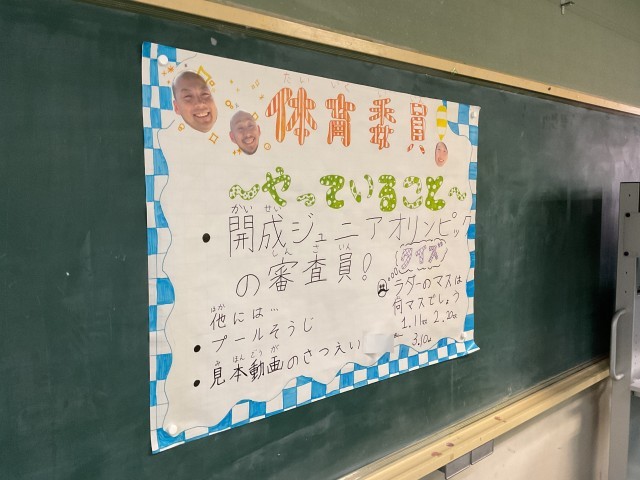 たい いく い いん
体育委員
～やっていること～
かい せい
・開成ジュニアオリンピック
しん さ いん
の審査員!
ほか
他には…
・プールそうじ
み ほん どう が
・見本動画のさつえい
クイズ
ラダーのマスは
何マスでしょう
1.11 2.20
3.10